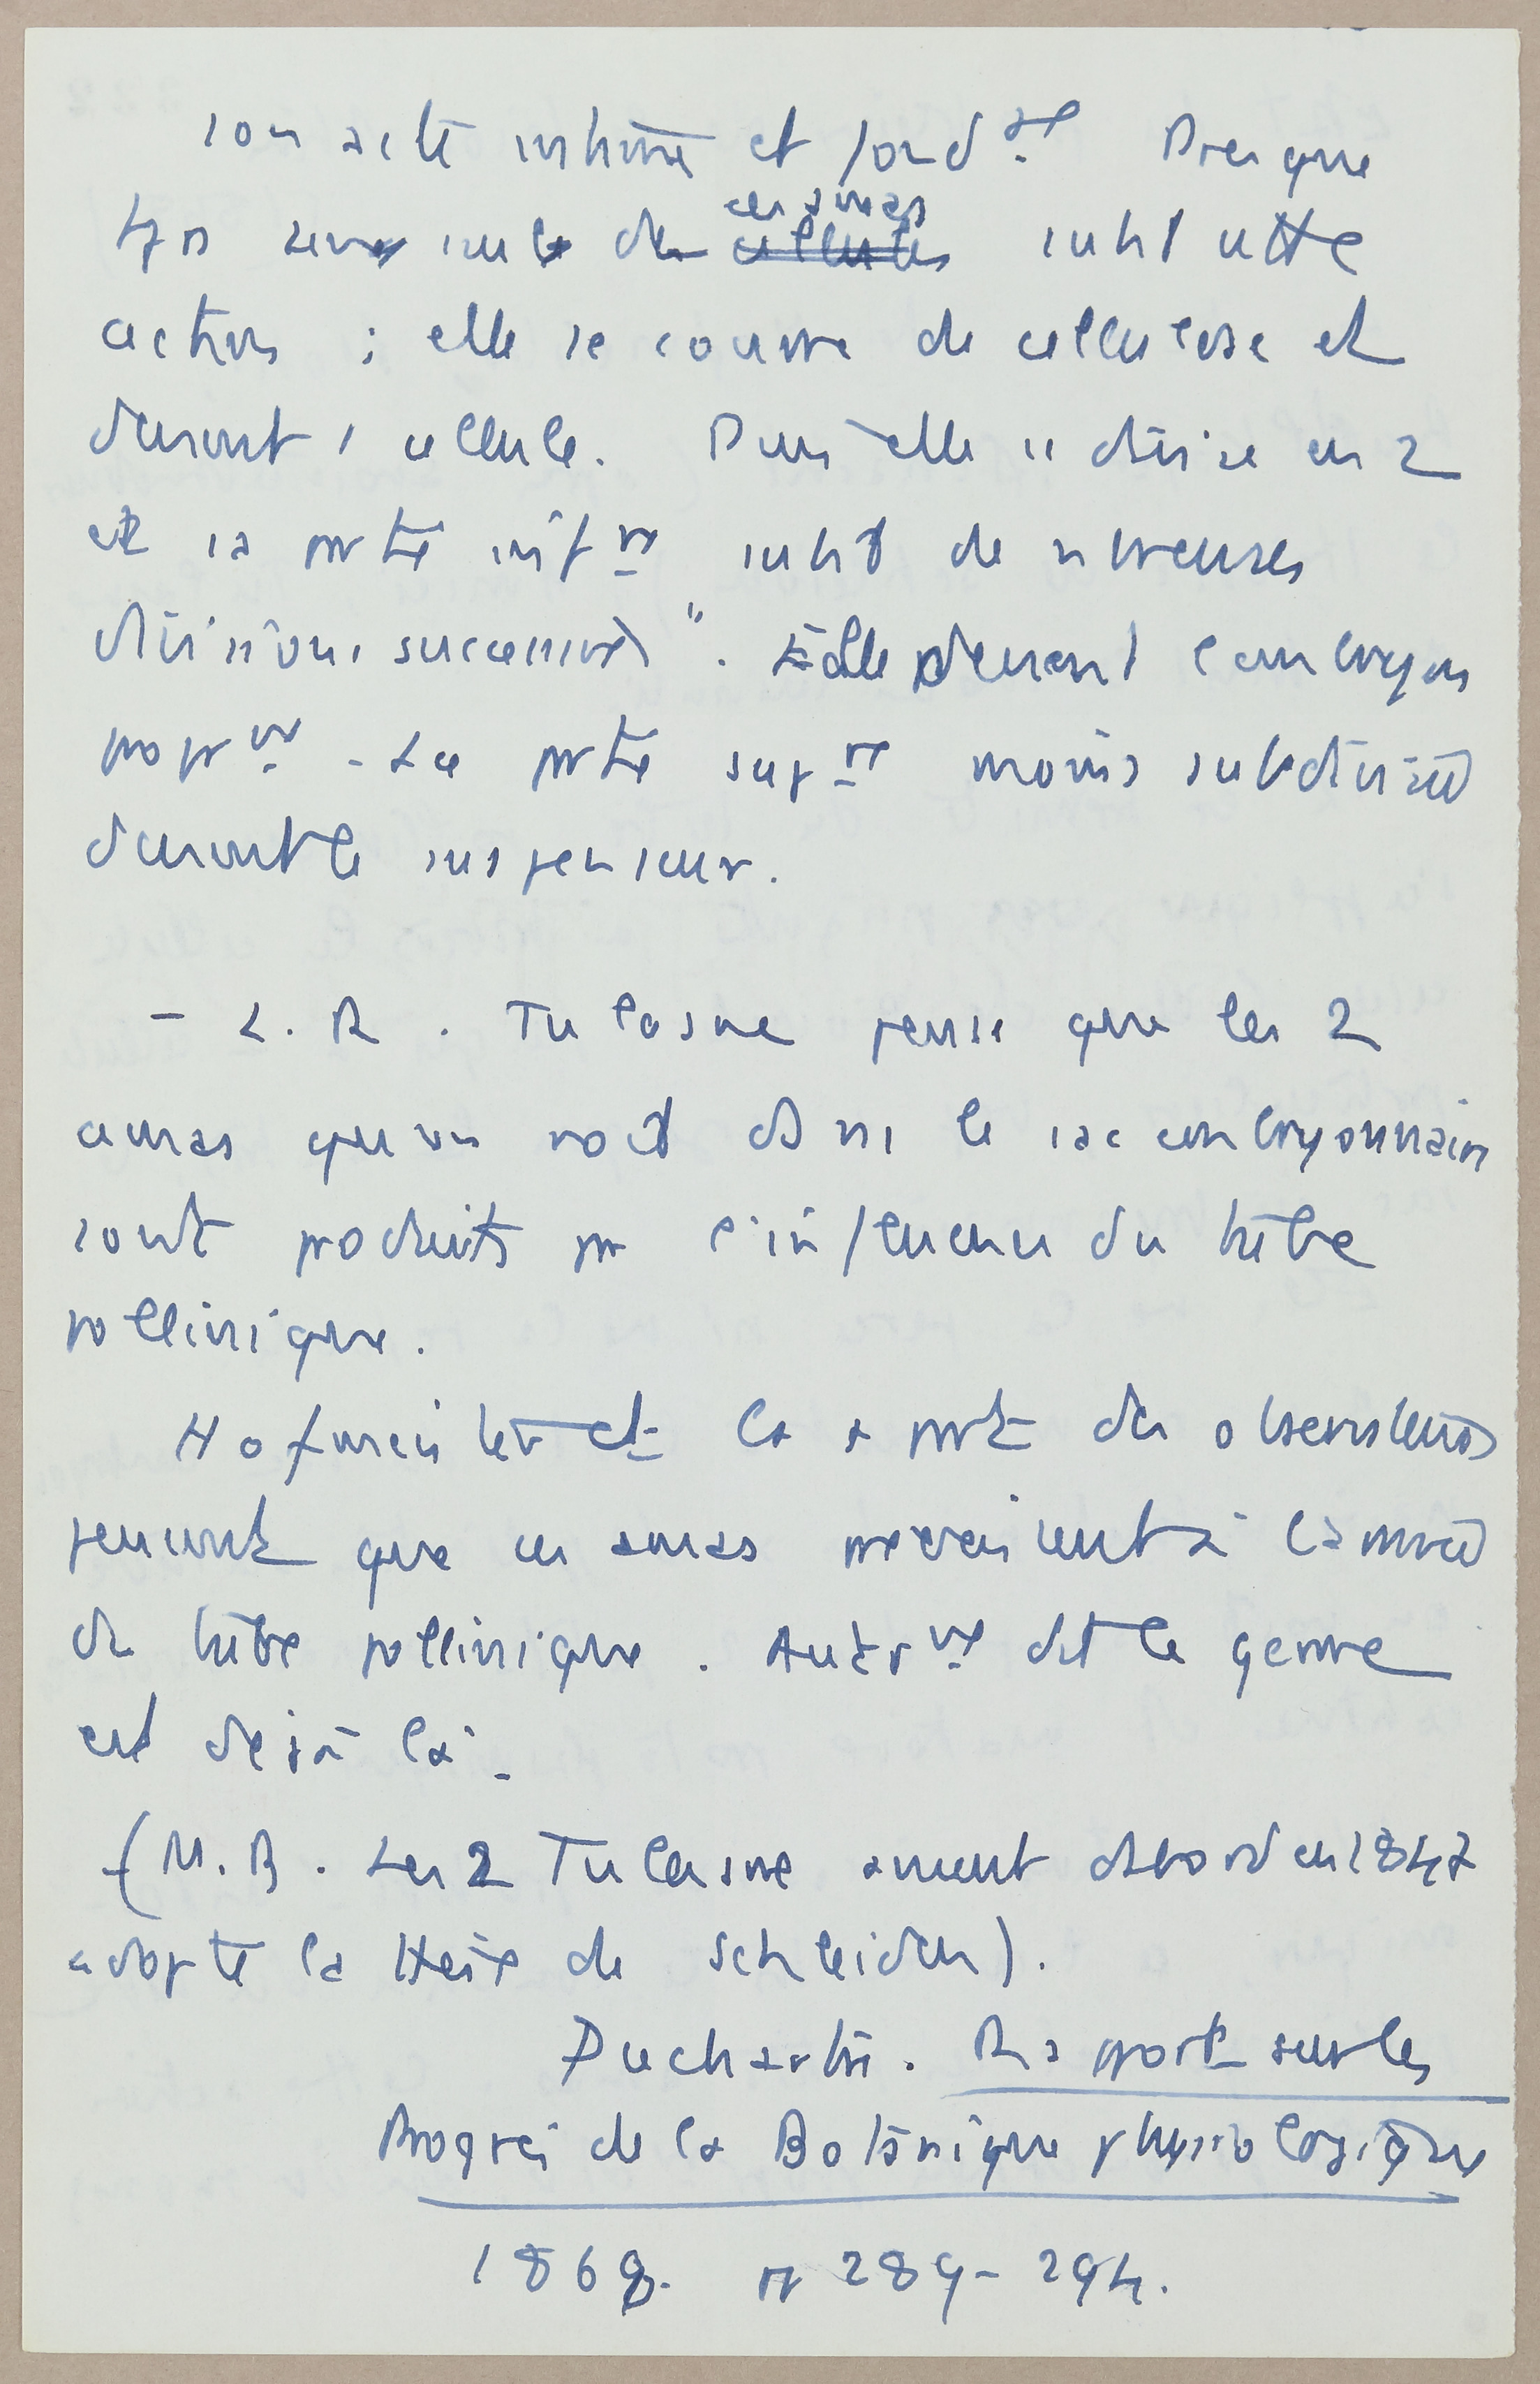 son acte intime et fond.al Presque
tjrs une seule de ces amas cellules subit cette
action ; elle se couvre de cellulose et
devient 1 cellule. Puis elle se divise en 2
et sa prtie infre subit de nbreuses
divisions successives". Elle devient l'embryon
proprt. La prtie supre moins subdivisée
devient le suspenseur.
- L. R. Tulasne pense que les 2
amas qu'on voit dns le sac embryonnaire
sont produits pr l'influence du tube
pollinique.
Hofmeister et la plprt des observateurs
pensent que ces amas préexistent à l'arrivée
du tube pollinique. Autrt dit le germe
est déjà là.
(N.B. Les 2 Tulasne avaient abord en 1847
adopté la thèse de Schleiden).
Duchartre. Rapport sur les
Progrès de la Botanique physiologique
1868. pp 289-294.